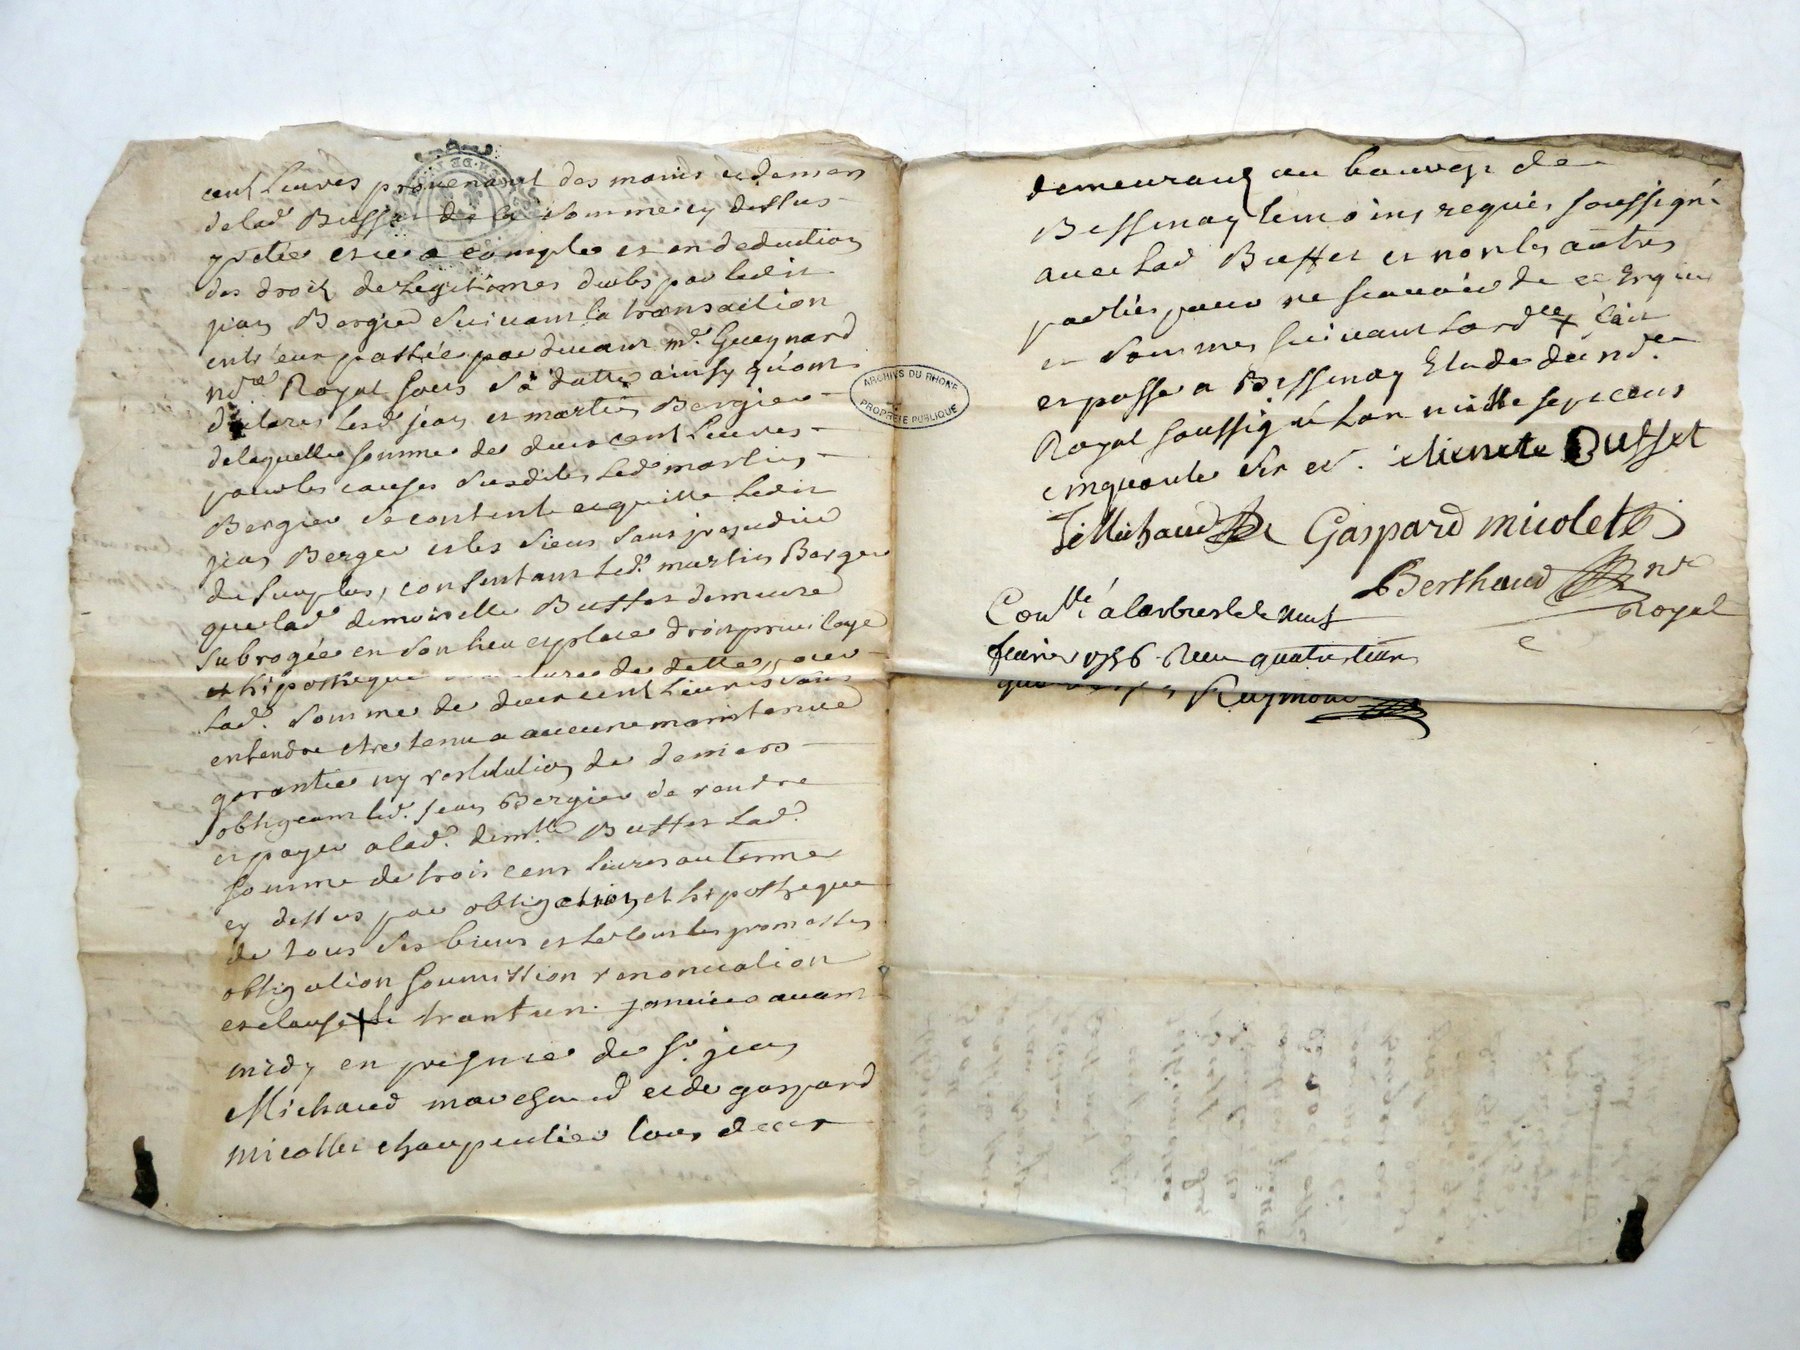 cent livres provenant des mains et deniers
de lad.e Busset de la somme cy dessus
prêtée et ce a compte et en deduction
des droits de Legitimes deubs par ledit
jean Bergier suivant la transaction
entr'eux passée par devant m.e Gueynard
nd.re Royal sous sa datte ainsy qu'ont
declares lesd. jean et martin Bergier
delaquelle somme de deux cent livres
pour les causes susdites led. martin
Bergier se contente et quitte ledit
jean Berger et les siens sans prejudice
du surplus, consentant led. martin Berger
que lad.e demoiselle Busset demeure
subrogée en son lieu et place droit privilege
et hipotheque de dette pour
lad.e somme de deux cent livres sans
entendre etre tenu a aucune maintenue
garantie ny restitution de deniers
obligeant led. jean Bergier de rendre
et payer a lad.e dem.lle Busset lad.e
somme de trois cent livres au terme
cy dessus par obligation et hipotheque
de tous ses biens et
obligation soumission renonciation
et clause le trant un janvier avant
midy en presence de S.r jean
Michaud marchand et de gaspard
micollet charpentier tous deux
demeurant au bourg de
Bessenay temoins requis soussigné
avec lad.e Busset et non les autres
parties pour ne scavoir de ce Enquis
et sommes suivant lord.ce fait
et passé a Bessenay Etude du nd.re
Royal soussigné Lan mille sept cent
cinquante six et. Busset
J. Michaud Gaspard micolet
Berthaud nd.re
Royal
Con.llé a larbresle le neuf
fevrier 1756. Reçu quatre livres
Raymond
ARCHIVS DU RHONE
PROPRIETE PUBLIQUE